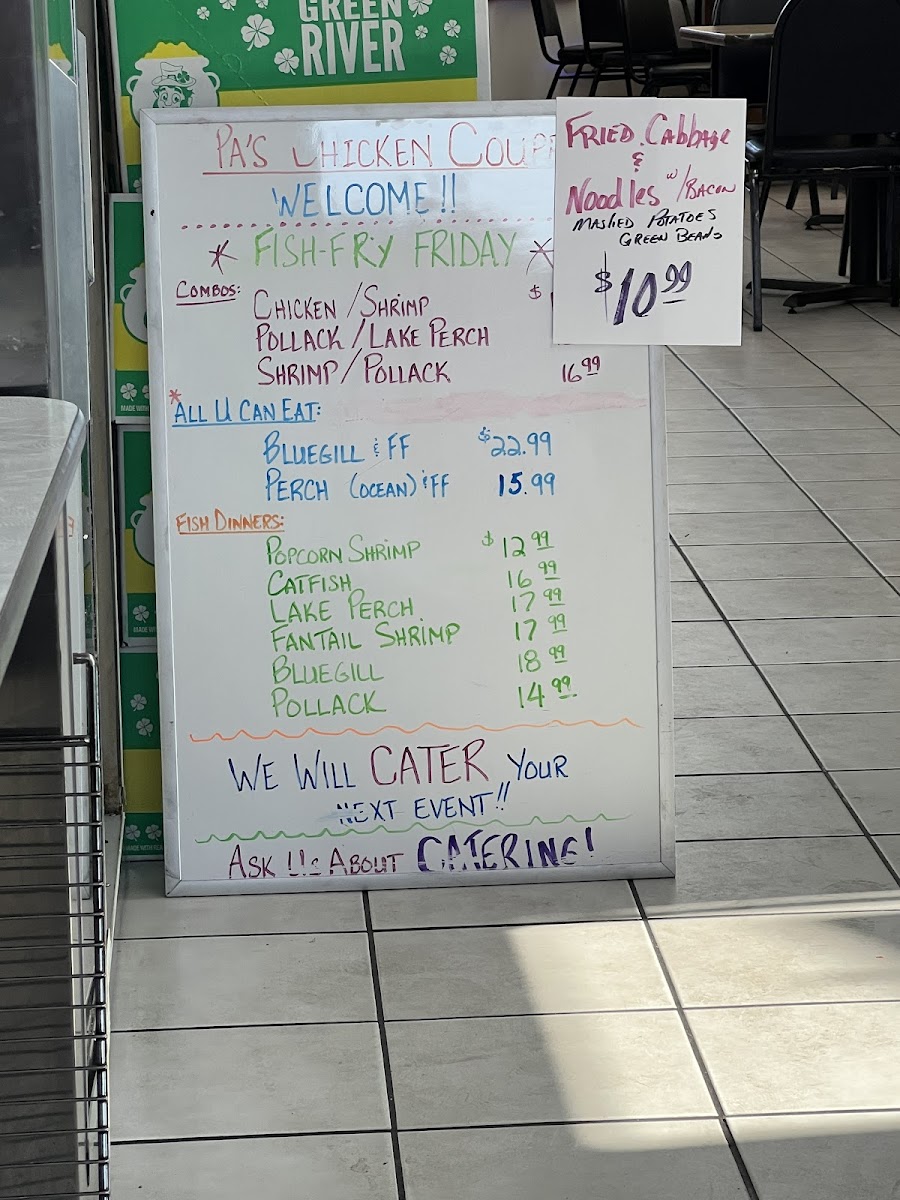 GREEN
RIVER
PA'S CHICKEN COUP
WELCOME!!
* FISH-FRY FRIDAY *
COMBOS:
CHICKEN/SHRIMP $
POLLACK/LAKE PERCH
SHRIMP/POLLACK 16.99
*ALL U CAN EAT:
BLUEGILL & FF $22.99
PERCH (OCEAN) & FF 15.99
FISH DINNERS:
POPCORN SHRIMP $12.99
CATFISH 16.99
LAKE PERCH 17.99
FANTAIL SHRIMP 17.99
BLUEGILL 18.99
POLLACK 14.99
WE WILL CATER YOUR
NEXT EVENT!!
ASK US ABOUT CATERING!
FRIED CABBAGE
&
NOODLES W/BACON
MASHED POTATOES
GREEN BEANS
$10.99
MADE WITH
MADE WITH
MADE WITH